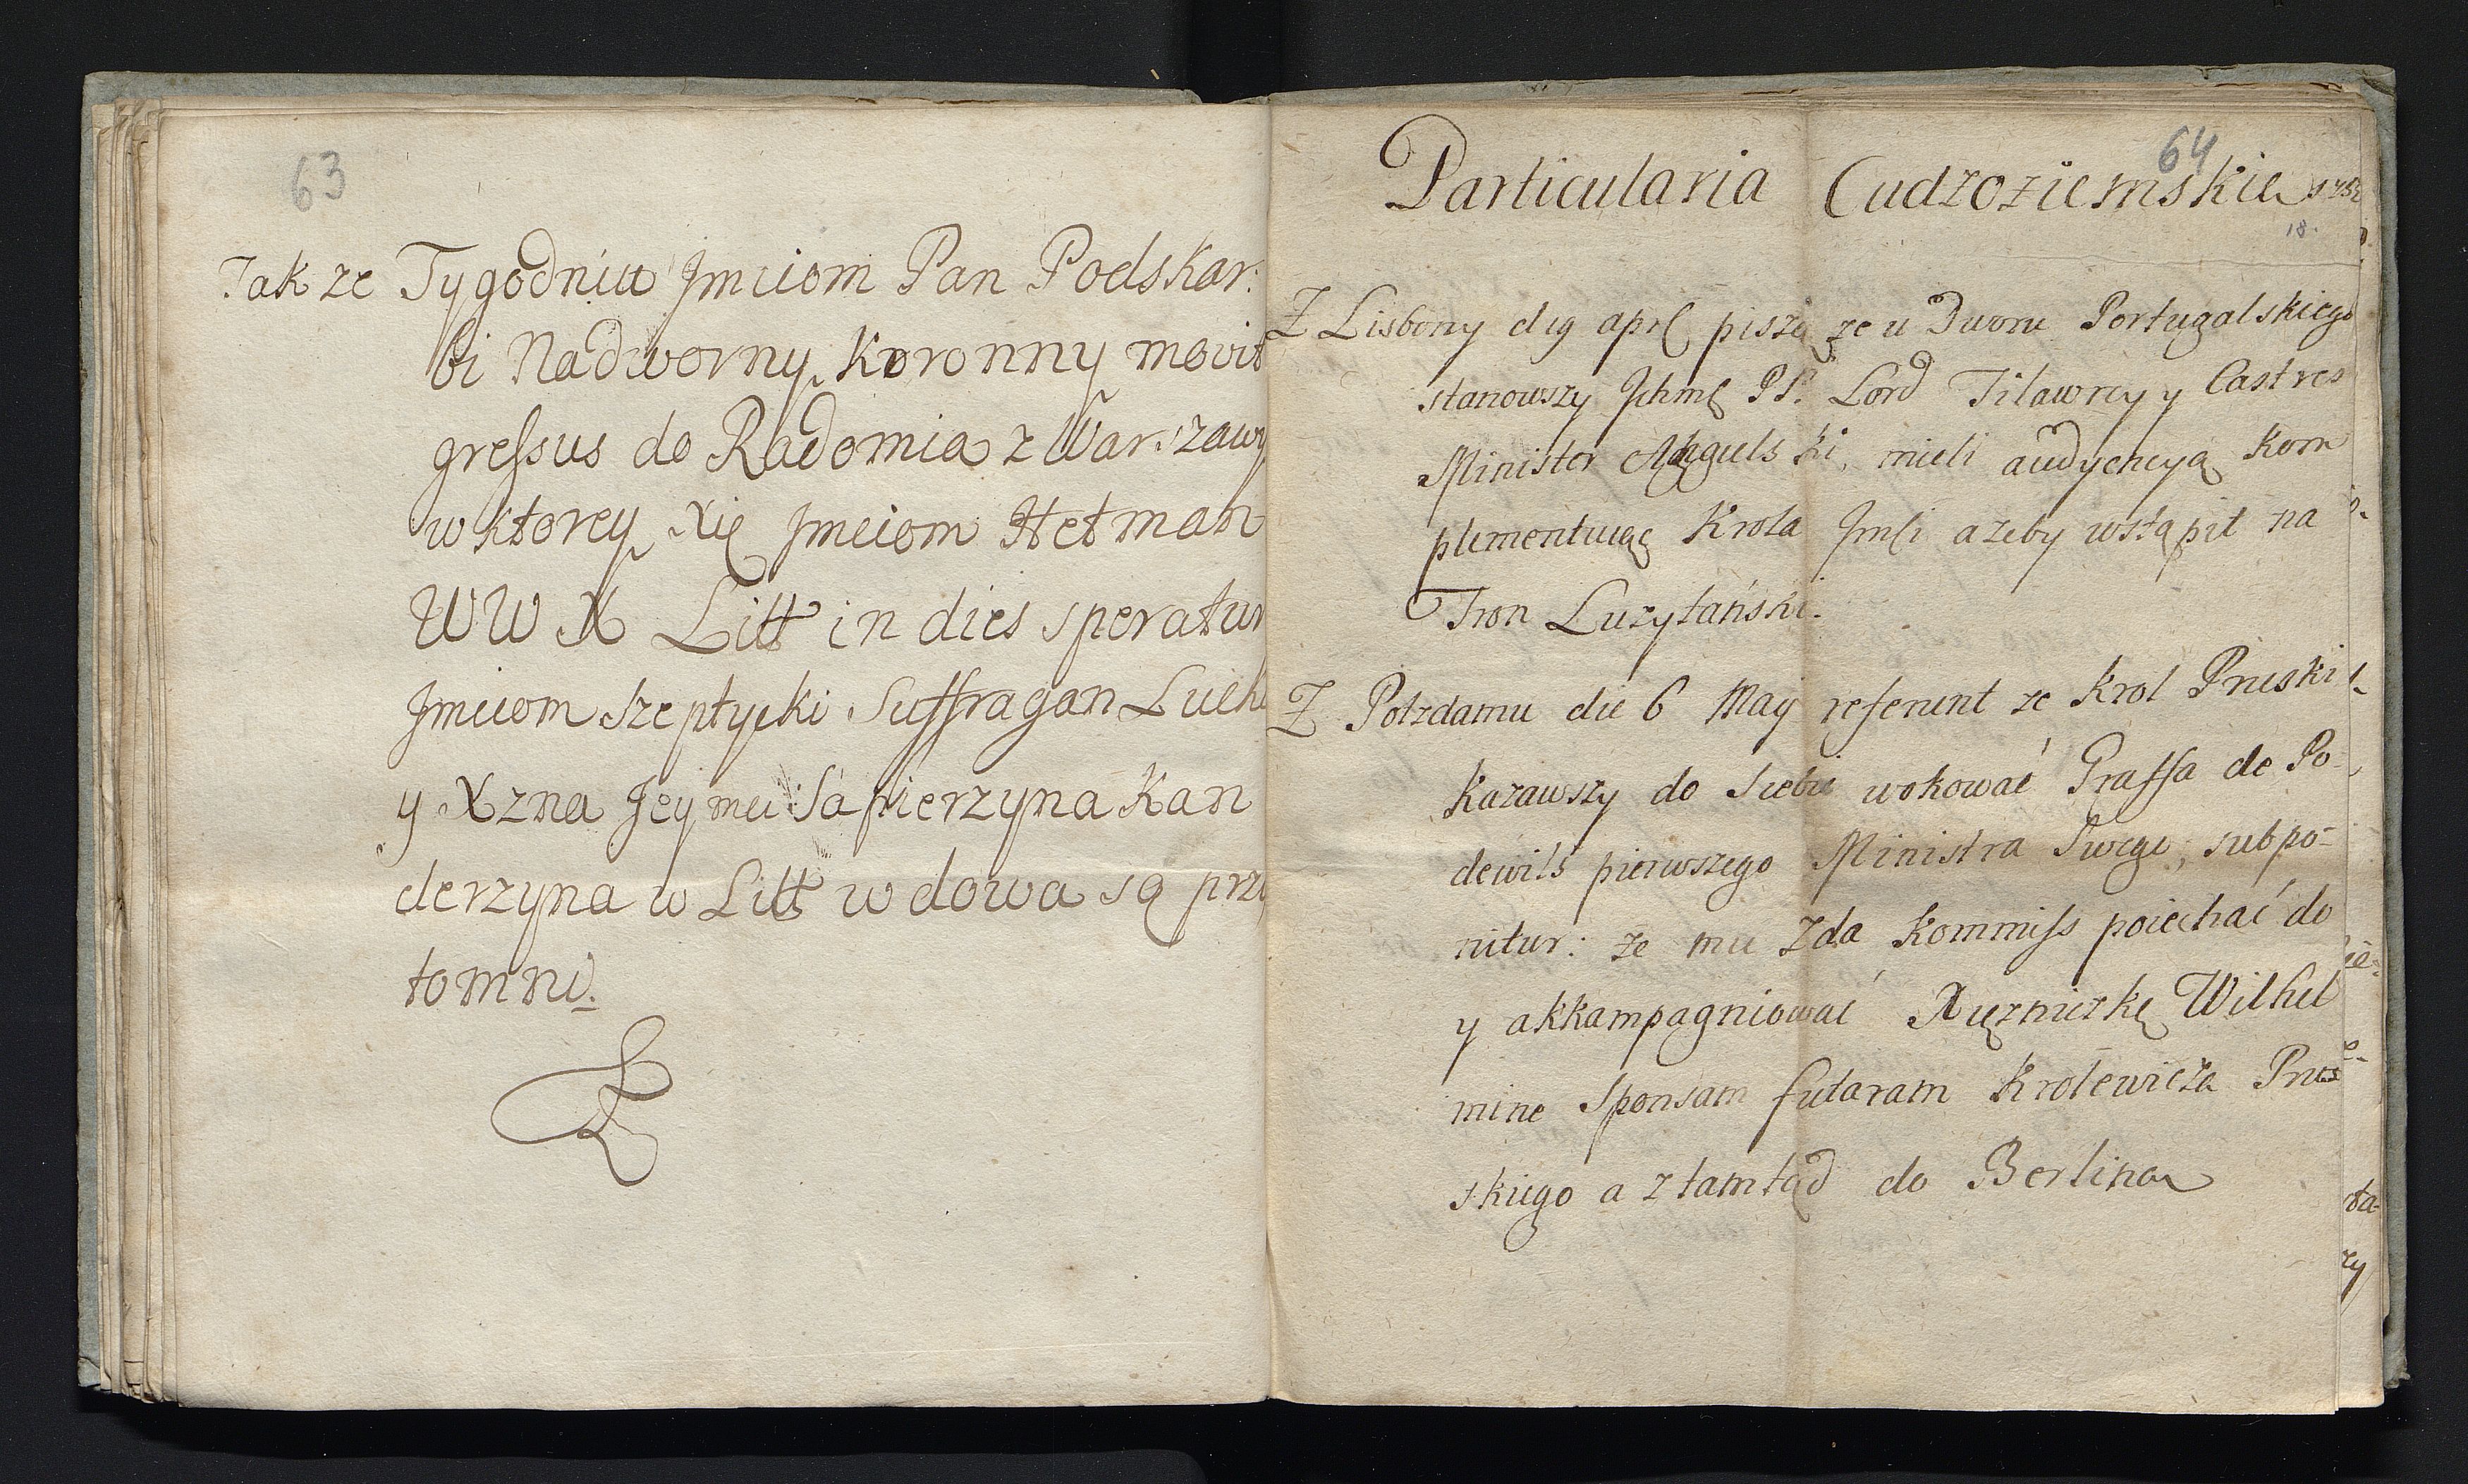 63
Tak ze Tygodniu Jmciom Pan Podskar:
bi Nadworny Koronny movit
gressus do Radomia z Warszawy
w ktorey Xię Jmciom Hetman
WWX Litt in dies speratur
Jmciom Szeptycki Suffragan Lucki
y Xzna Jey mci Sapierzyna Kan
derzyna w Litt wdowa są przy
tomni.
64
Particularia Cudzoziemskie
18.
Z Lisbony d 19 apr piszą ze u Dworu Portugalskiego
stanowszy Jchmć PP. Lord Tilawrey y Castres
Minister Anguelski, mieli audyencyą kom
plementuiąc Krola Jmci azeby wstąpit na
Tron Luzytański.
Z Potzdamu die 6 Maij referunt ze Krol Pruski
kazawszy do Siebie wokować Graffa de Po-
dewils pierwszego Ministra Swego, subpo-
nitur: ze mu zda kommiss poiechać do
y akkampagniować Xięzniczkę Wilhel
mine Sponsam futaram Krolewicza Prus
skiego a z tamtąd do Berlina